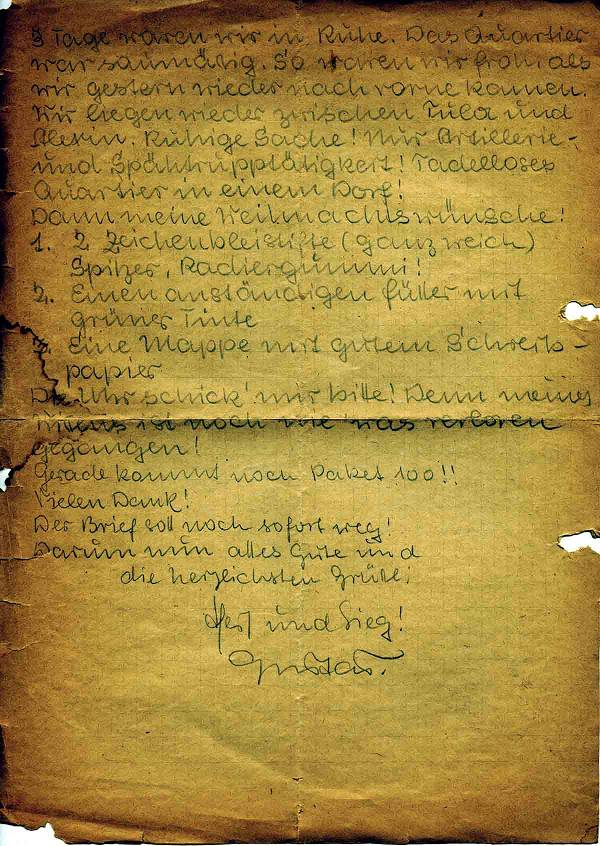 3 Tage waren wir in Ruhe. Das Quartier
war saumäßig. So waren wir froh, als
wir gestern wieder nach vorne kamen.
Wir liegen wieder zwischen Tula und
Alexin. Ruhige Sache! Nur Artillerie-
und Spähtrupptätigkeit! Tadelloses
Quartier in einem Dorf!
Dann meine Weihnachtswünsche!
1. 2 Zeichenbleistifte (ganz weich)
Spitzer, Radiergummi!
2. Einen anständigen Füller mit
grüner Tinte
3. Eine Mappe mit gutem Schreib-
papier
Die Uhr schick' mir bitte! Denn meines
ist noch nie was verloren
gegangen!
Gerade kommt noch Paket 100!!
Vielen Dank!
Der Brief soll noch sofort weg!
Darum nun alles Gute und
die herzlichsten Grüße!
und Sieg!
Gustav.